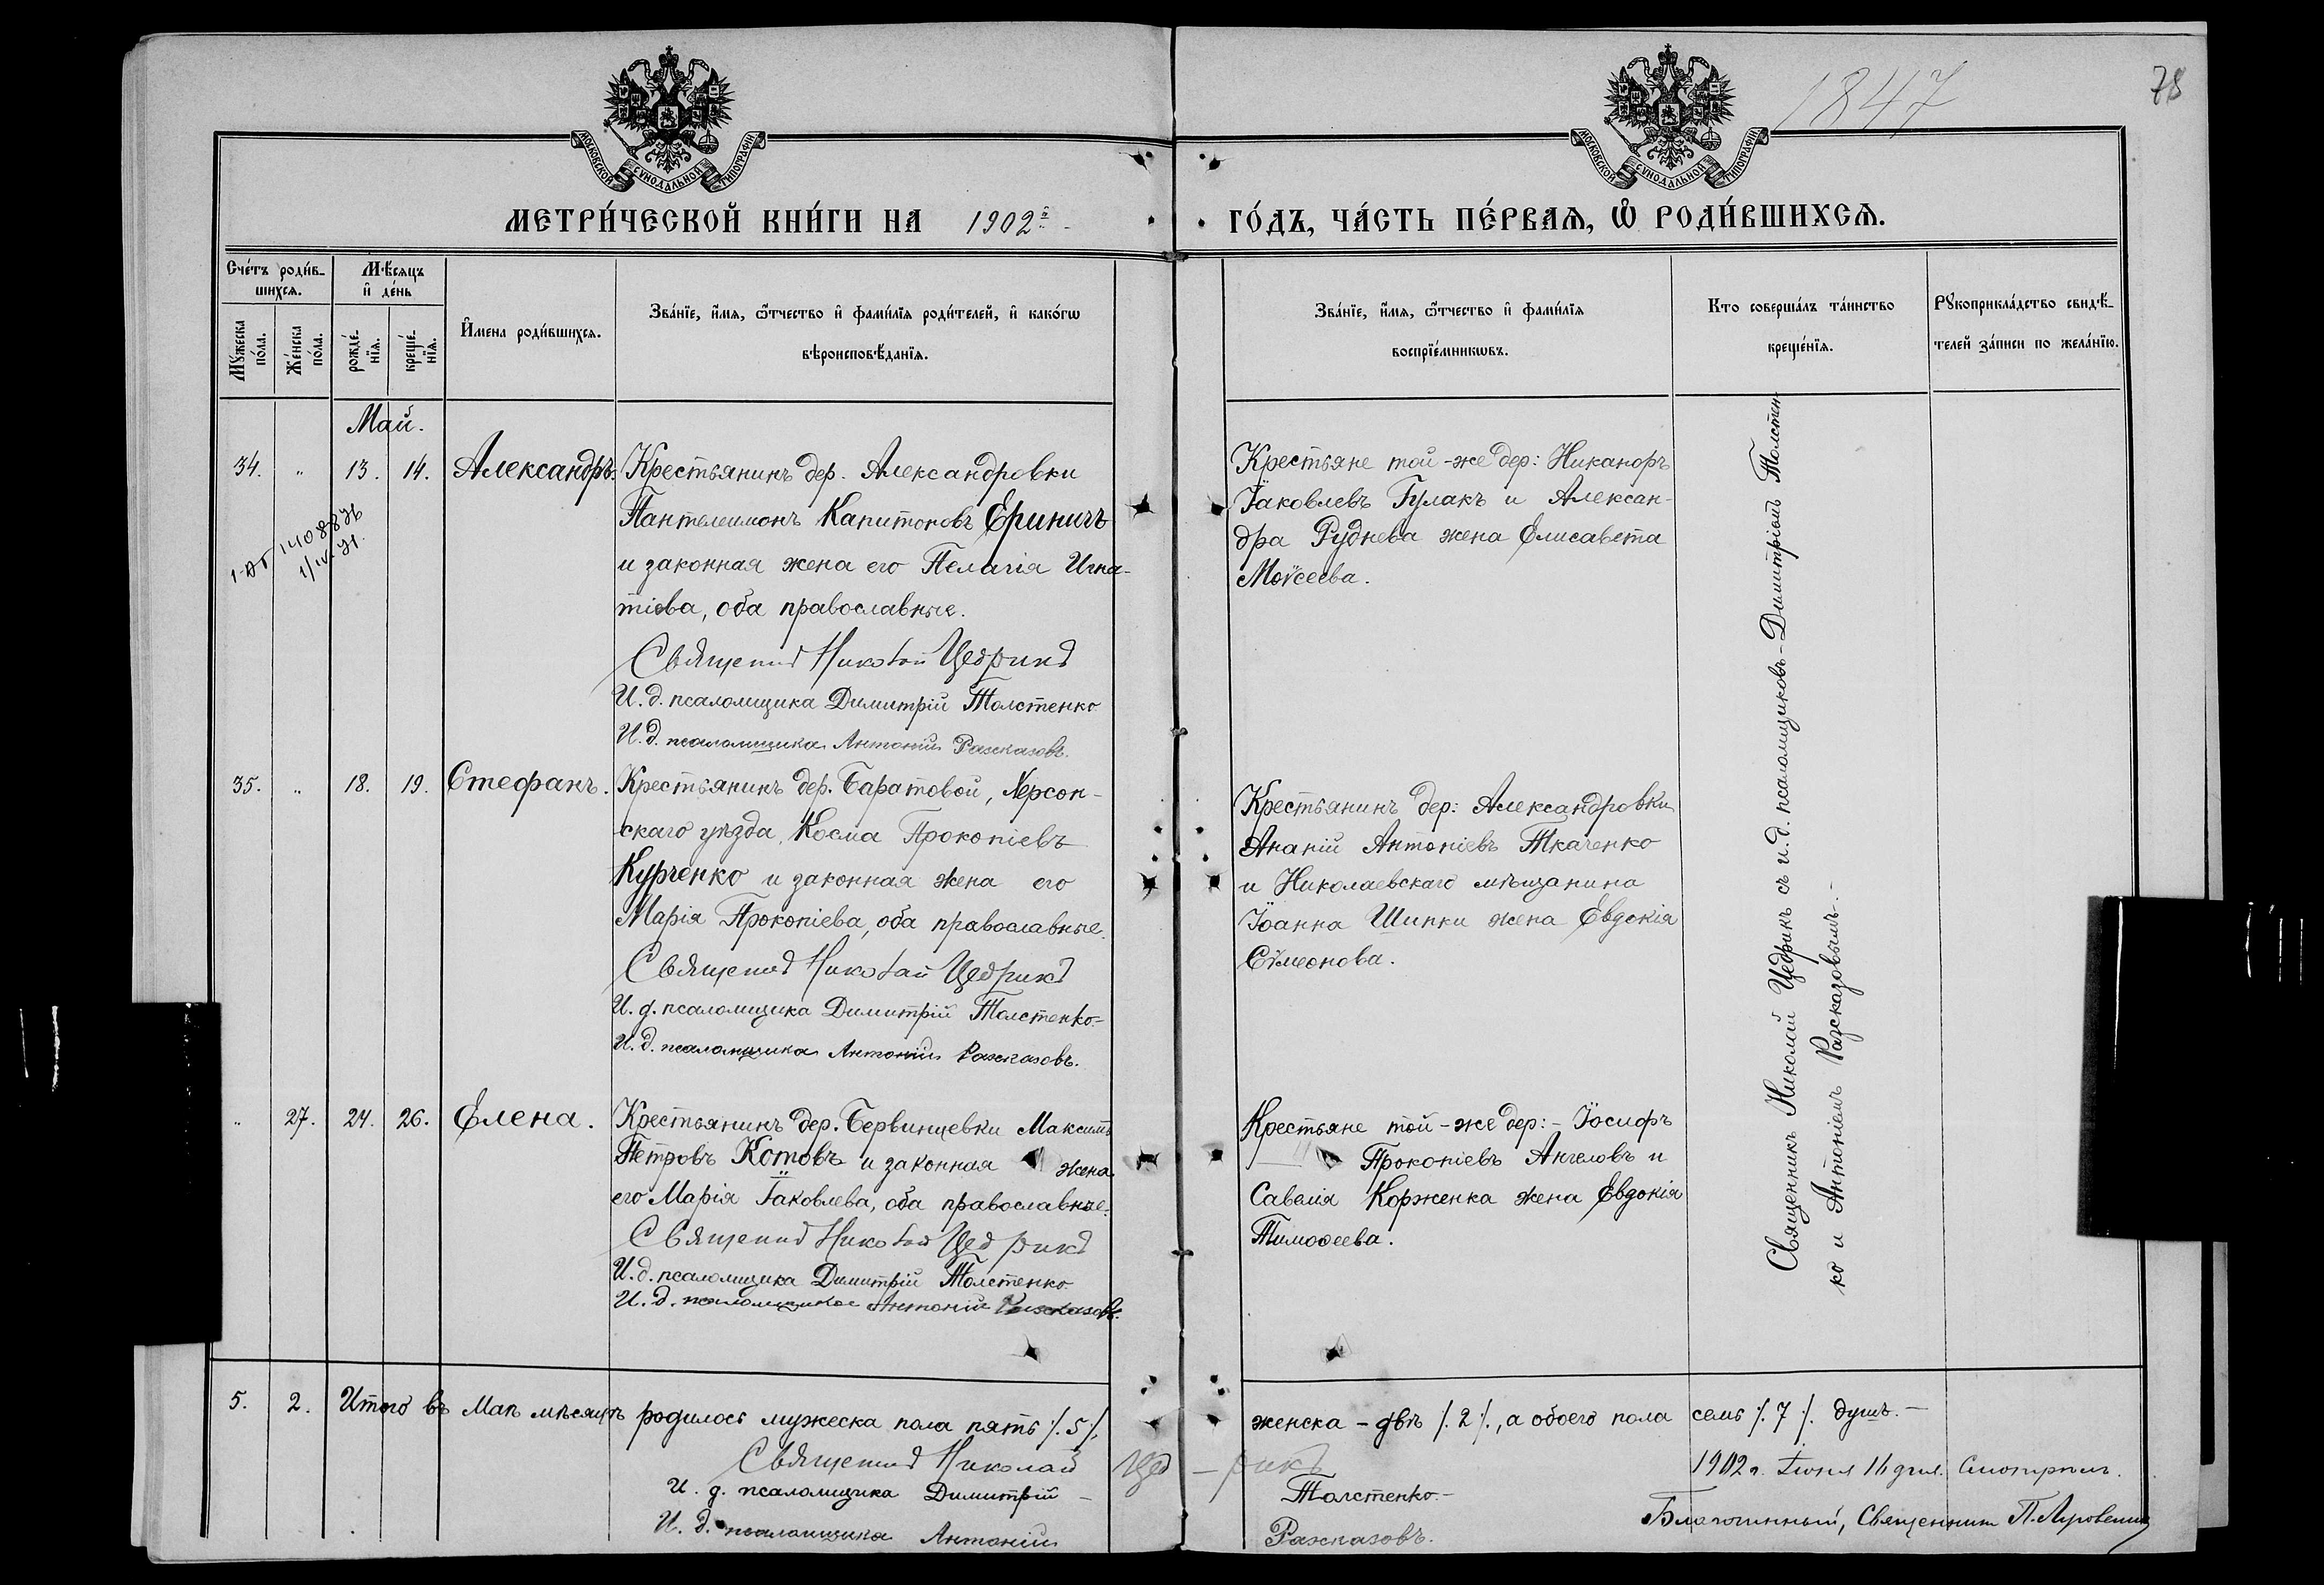 1847
78
МОСКОВСКОЙ СѴНОДАЛЬНОЙ ТИПОГРАФІИ
МОСКОВСКОЙ СѴНОДАЛЬНОЙ ТИПОГРАФІИ
МЕТРИ́ЧЕСКОЙ КНИ́ГИ НА 1902й
ГО́ДЪ, ЧА́СТЬ ПЕ́РВАѦ, Ѡ҆ РОДИ́ВШИХСѦ.
Сче́тъ роди́в-
шихсѧ.
Мꙋ́жеска
по́ла.
Же́нска
по́ла.
Мѣ́сяцъ
и҆ де́нь
рожде́-
нїѧ.
креще́-
нїѧ.
И҆мена роди́вшихсѧ.
Зва́нїе, и҆́мѧ, ѻ҆́тчество и҆ фами́лїѧ роди́телей, и҆ како́гѡ
вѣроисповѣ́данїѧ.
Зва́нїе, и҆́мѧ, ѻ҆́тчество и҆ фами́лїѧ
воспрїе́мникѡвъ.
Кто соверша́лъ та́инство
креще́нїѧ.
Рꙋкоприкла́дство свидѣ́-
телей за́писи по жела́нїю.
Май.
34. " 13. 14. Александръ.
Крестьянинъ дер. Александровки
Пантелеимонъ Капитоновъ Ериничъ
и законная жена его Пелагія Игна-
тіева, оба православные.
Священникъ Николай Цедрикъ
И. д. псаломщика Димитрій Толстенко
И. д. псаломщика Антоній Разсказовъ.
Крестьяне той-же дер: Никаноръ
Іаковлевъ Гулакъ и Алексан-
дра Руднева жена Елисавета
Моѵсеева.
35. " 18. 19. Стефанъ.
Крестьянинъ дер. Баратовой, Херсон-
скаго уѣзда, Косма Прокопіевъ
Курченко и законная жена его
Марія Прокопіева, оба православные.
Священникъ Николай Цедрикъ
И. д. псаломщика Димитрій Толстенко.
И. д. псаломщика Антоній Разсказовъ.
Крестьянинъ дер: Александровки
Ананій Антоніевъ Ткаченко
и Николаевскаго мѣщанина
Іоанна Шипки жена Евдокія
Сѵмеонова.
" 27. 24. 26. Елена.
Крестьянинъ дер. Бервинцевки Максимъ
Петровъ Котовъ и законная жена
его Марія Іаковлева, оба православные.
Священникъ Николай Цедрикъ
И. д. псаломщика Димитрій Толстенко
И. д. псаломщика Антоній Разсказовъ.
Крестьяне той-же дер:- Іосифъ
Прокопіевъ Ангеловъ и
Савелія Корженка жена Евдокія
Тимоѳеева.
Священникъ Николай Цедрикъ съ и. д. псаломщиковъ - Димитріемъ Толстен-
ко и Антоніемъ Разсказовымъ.-
5. 2. Итого въ Маѣ мѣсяцѣ родилось мужеска пола пять /.5/.
женска - двѣ /.2/., а обоего пола семь /.7/. душъ.-
Священникъ Николай Цед - рикъ
И. д. псаломщика Димитрій - Толстенко.-
И. д. псаломщика Антоній Разсказовъ.
1902 г. Іюня 16 дня. Смотрѣлъ.
Благочинный, Священникъ П.